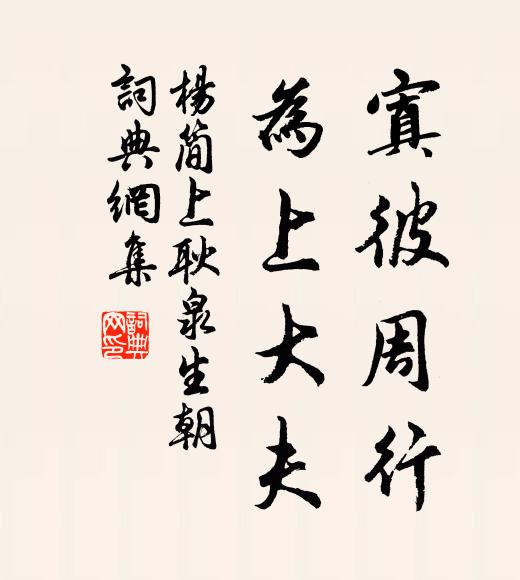 寘彼周行
為上大夫
楊簡上耿泉生朝
詞典網集
詞典網印